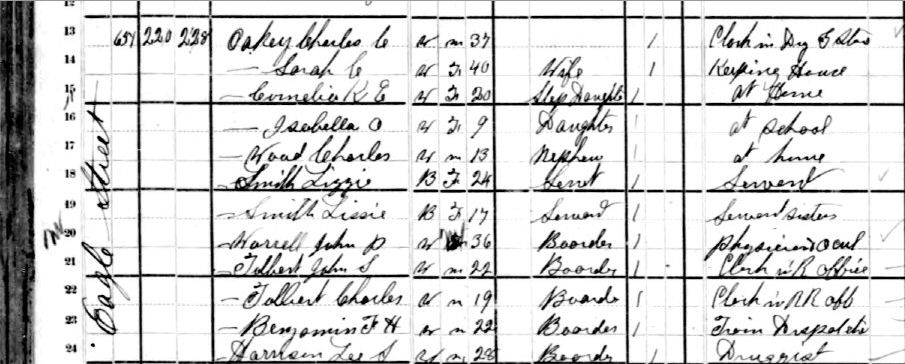 12
13 651 220 228 Oakey Charles C W M 37 1 Clerk in Dry G Store
14 — Sarah C W F 40 Wife 1 Keeping House
15 — Cornelia K E W F 20 Step Daughter 1 at Home
16 — Isabella O W F 9 Daughter 1 at school
17 — Wood Charles W M 13 Nephew 1 at home
18 Smith Lizzie B F 24 Servt 1 Servant
19 — Smith Lissie B F 17 Servant 1 Servant sisters
20 — Worrell John D W M 36 Boarder 1 physician
21 — Tolbert John S W M 22 Boarder 1 Clerk in R office
22 — Tolbert Charles W M 19 Boarder 1 Clerk in RR off
23 — Benjamin F H W M 22 Boarder 1 Train
24 Harrison Lee S W M 28 Boarder 1 Druggist
Eagle Street